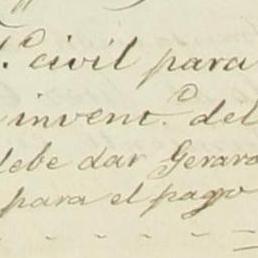 T.º civil para
invent.º del
debe dar Gerard
para el pago